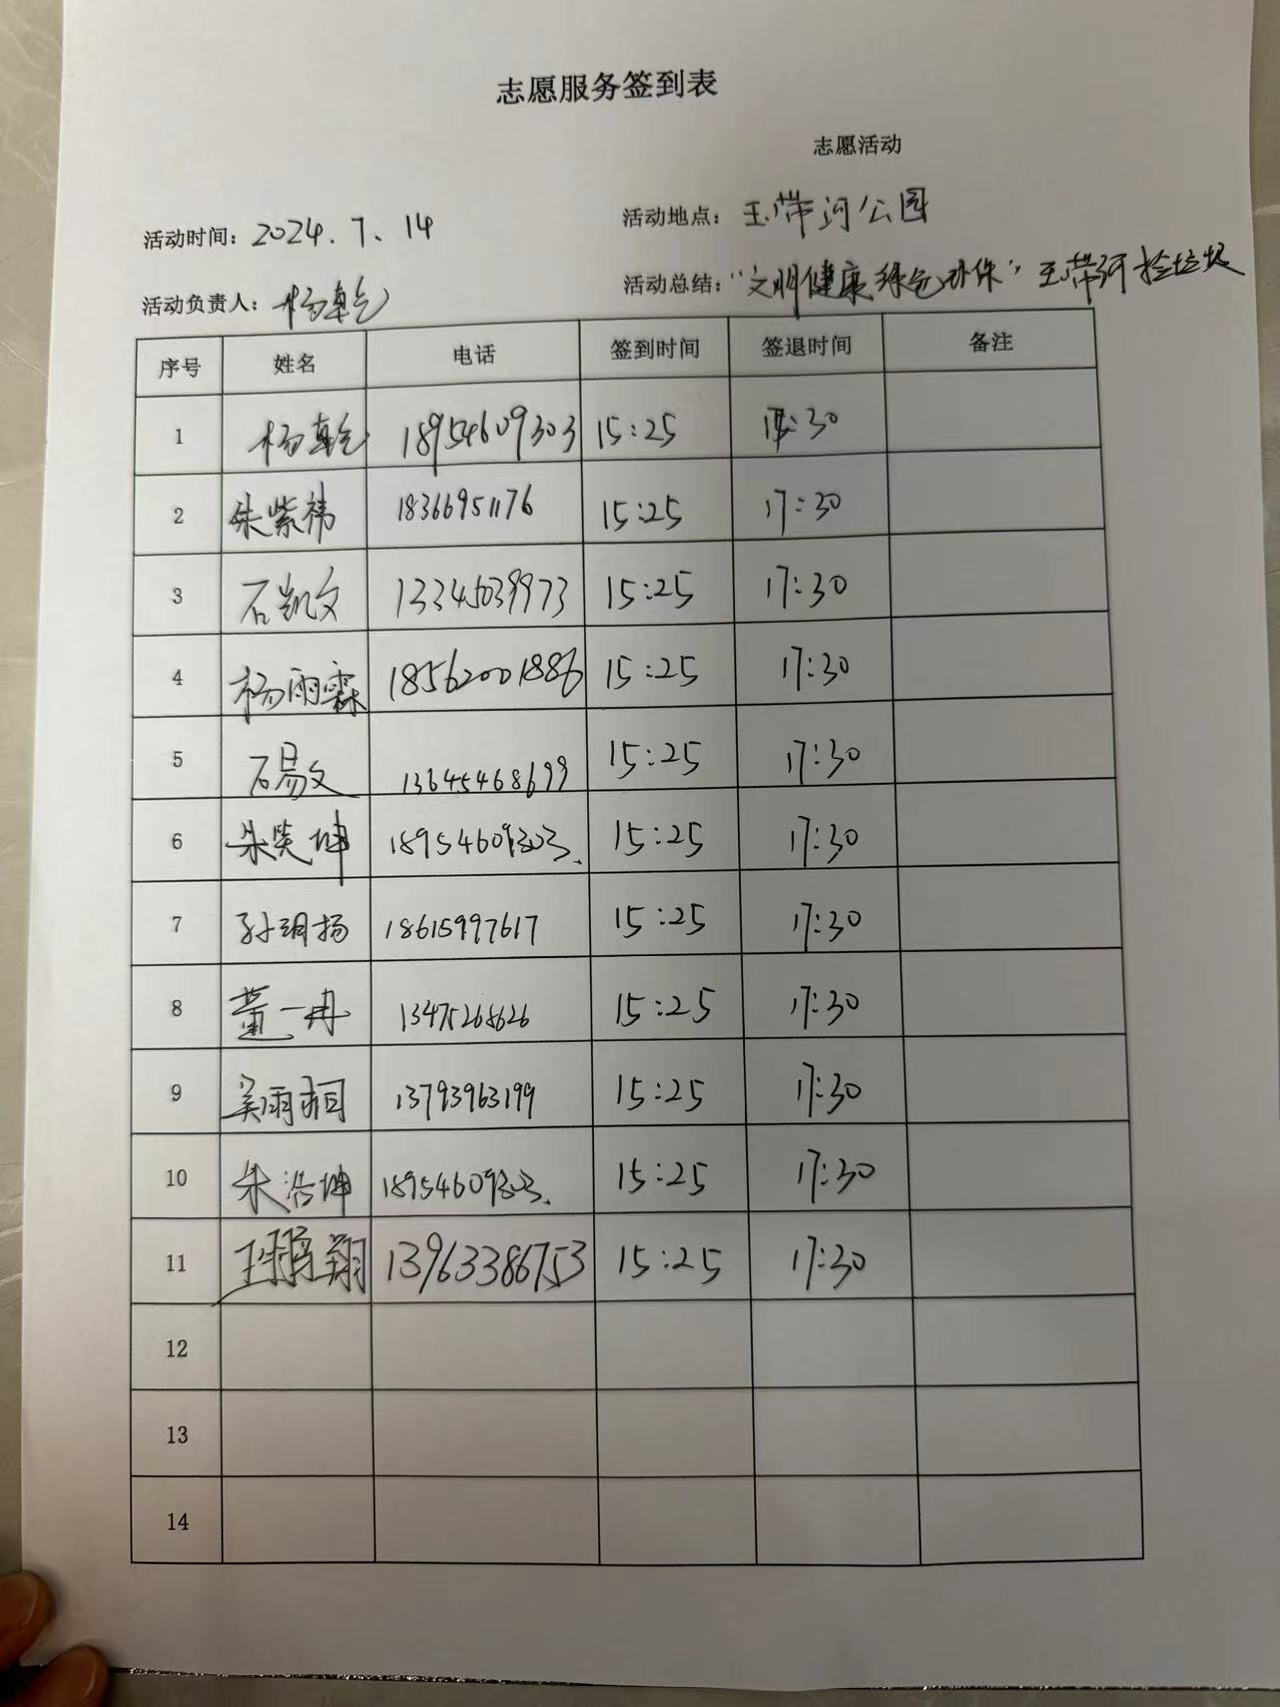 志愿服务签到表
志愿活动
活动时间：2024.7.14 活动地点：玉带河公园
活动负责人：杨乾 活动总结：“文明健康绿色环保”玉带河捡垃圾
序号 姓名 电话 签到时间 签退时间 备注
1 杨乾 18954609303 15:25 17:30
2 朱紫祎 18366951176 15:25 17:30
3 石凯文 15:25 17:30
4 杨雨霖 18562001886 15:25 17:30
5 石易文 13645468699 15:25 17:30
6 朱奕坤 18954609303. 15:25 17:30
7 孙玥扬 18615997617 15:25 17:30
8 董一冉 13475268626 15:25 17:30
9 吴雨桐 13793963199 15:25 17:30
10 朱浩坤 18954609303. 15:25 17:30
11 翔 13963386753 15:25 17:30
12
13
14